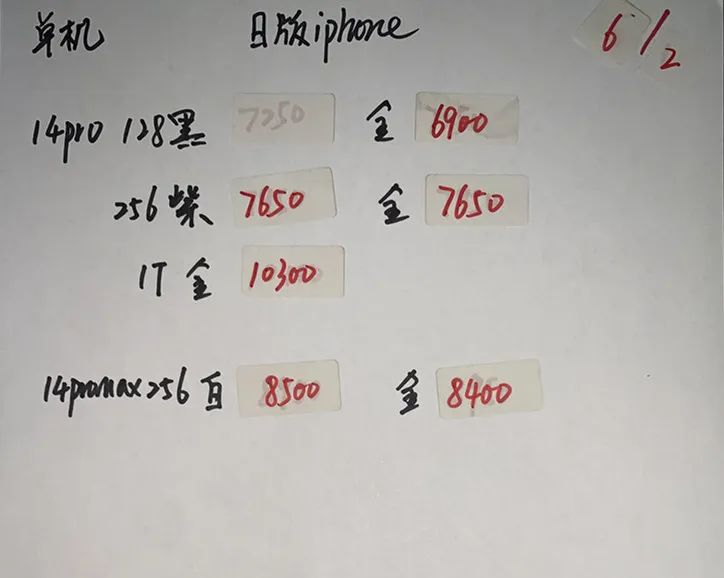 单机 日版iphone 6/2
14pro 128黑 7250 金 6900
256紫 7650 金 7650
1T 金 10300
14promax 256 白 8500 金 8400